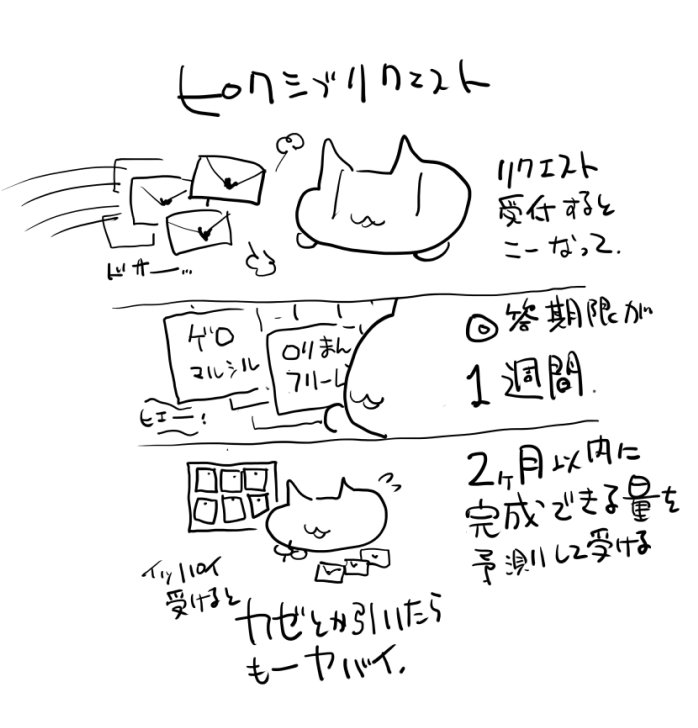 ヒロクミブリクエスト
リクエスト
受付すると
こーなって.
ドサー…
ゲロ
マルシル
ロリまん
フリーレ
ヒエー!
◎答期限が
1週間.
2ヶ月以内に
完成できる量を
予測して受ける
イッパイ
受けると
カゼとか引いたら
もーヤバイ.